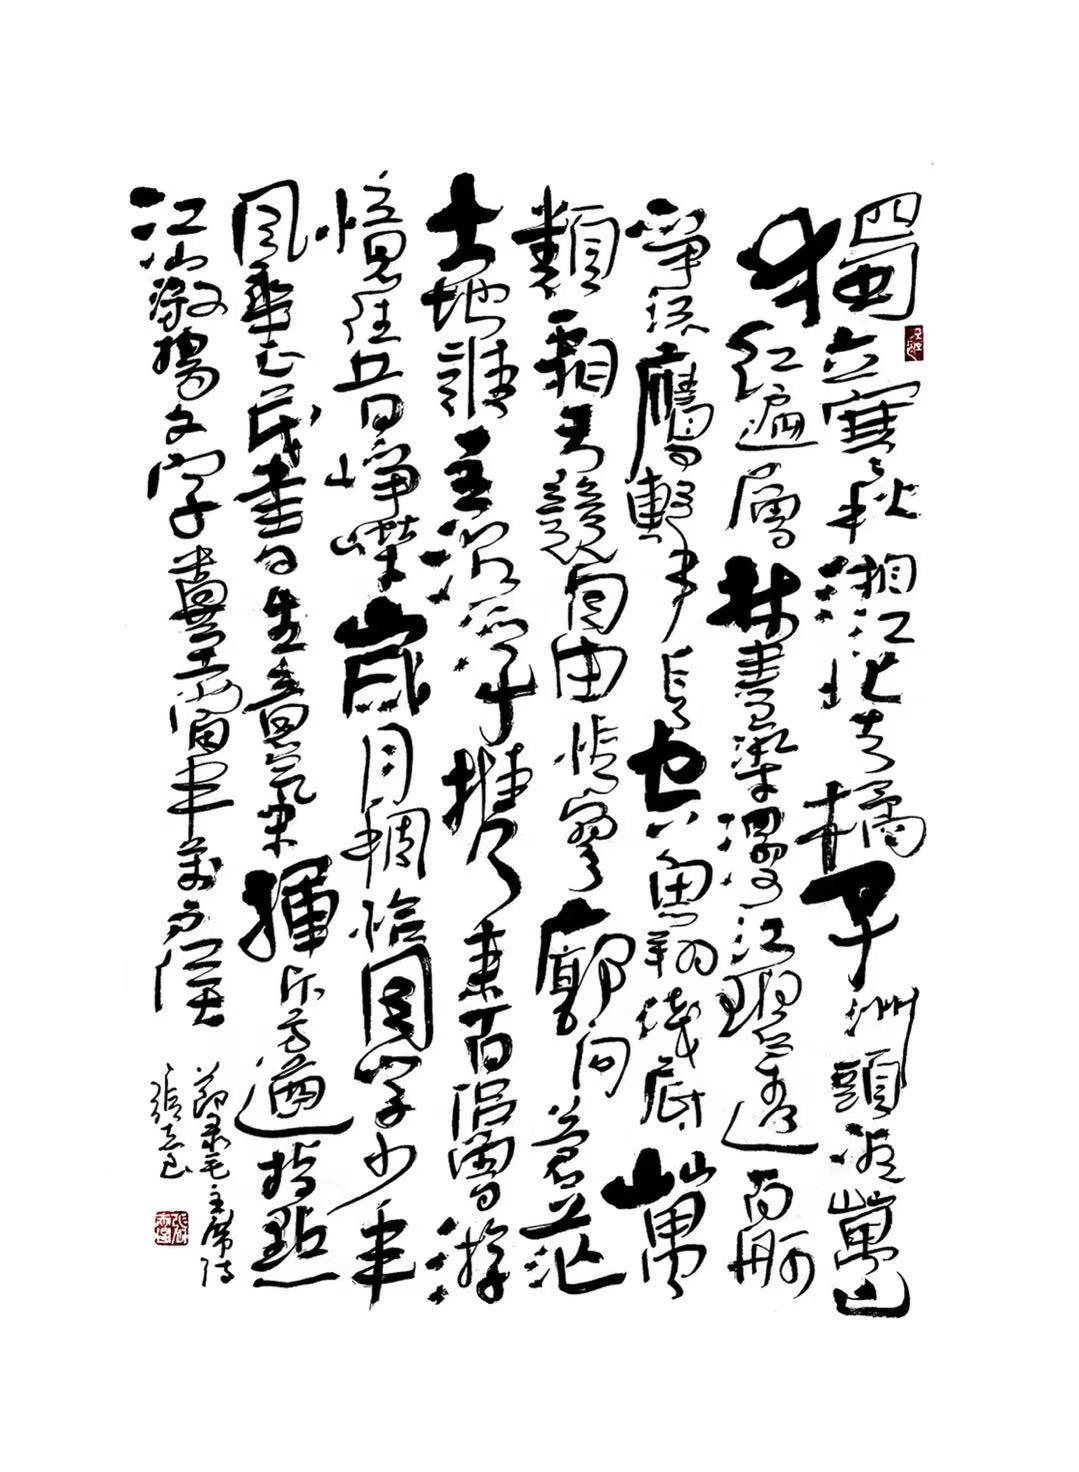 獨立寒秋湘江北去橘子洲頭萬山
紅遍層林盡染漫江碧透百舸
爭流鷹擊長空魚翔淺底萬
類霜天競自由悵寥廓問蒼茫
大地誰主沉浮攜來百侣曾游
憶往昔崢嶸歲月稠恰同學少年
風華正茂書生意氣揮斥方遒指點
江山激揚文字糞土當年萬户侯
節录毛主席诗
張